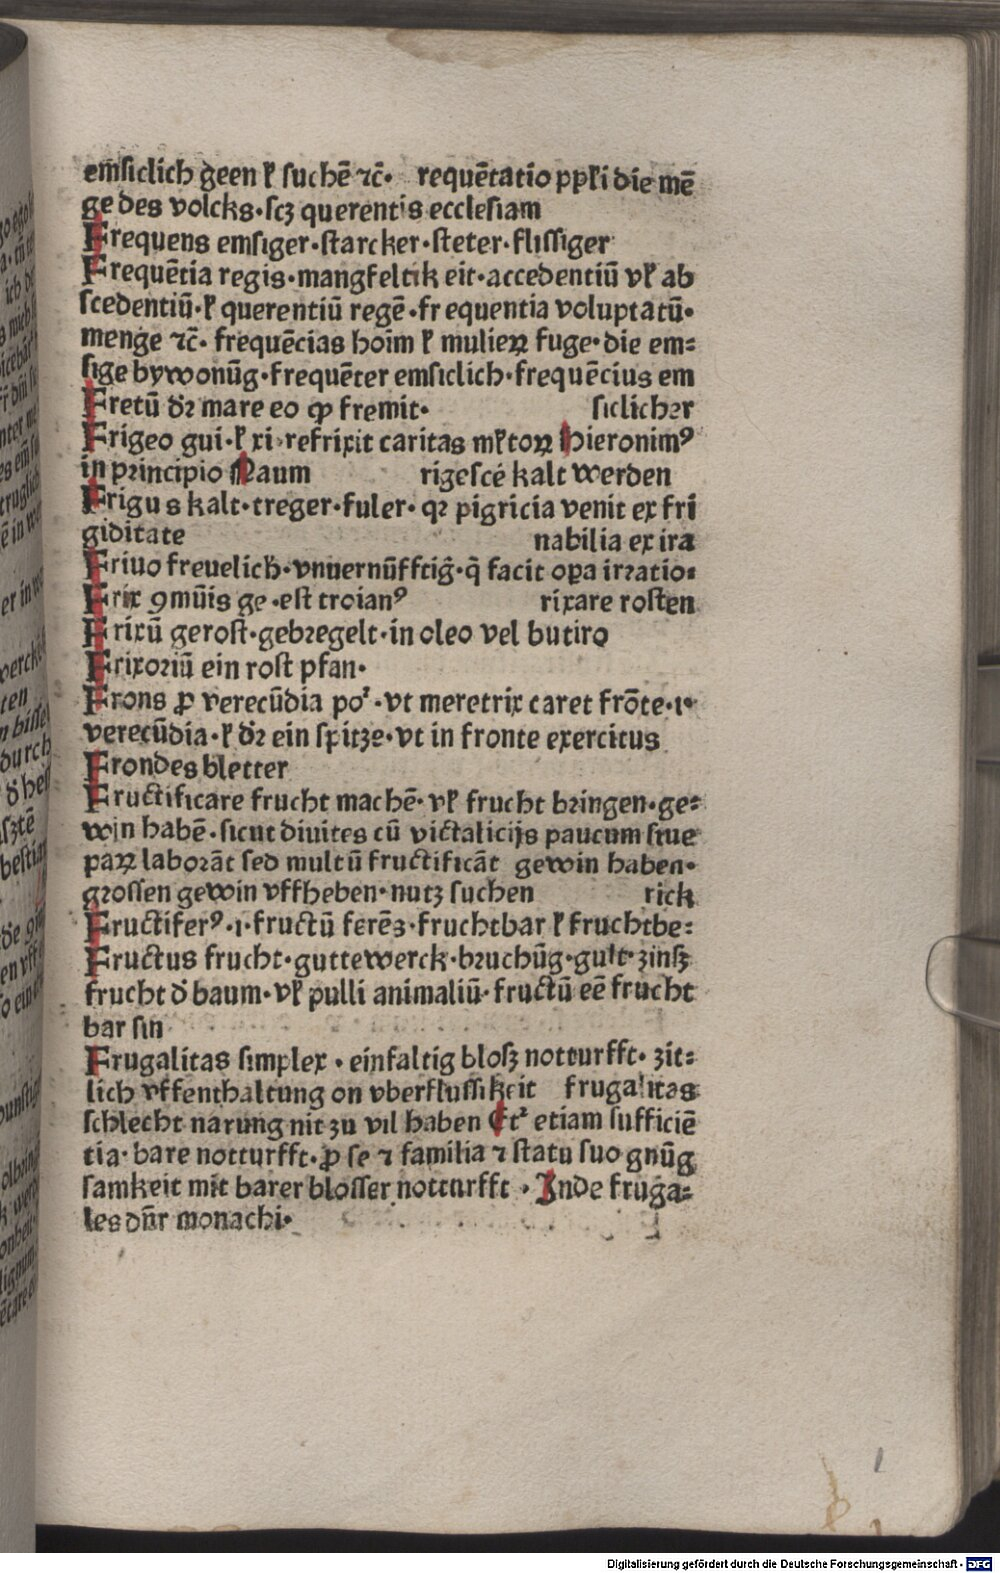 emsiclich geen ł suchē ⁊c̄· requētatio ppłi die mē
ge des volcks·scꝫ querentis ecclesiam
Frequens emsiger·starcker·steter·flissiger
Frequētia regis·mangfeltik eit·accedentiū vł ab
scedentiū·ł querentiū regē·frequentia voluptatū·
menge ⁊c̄· frequēcias hoim̄ ł mulieꝝ fuge·die em⸗
sige bywonūg·frequēter emsiclich·frequēcius em
Fretū dꝛ mare eo ꝙ fremit· siclicher
Frigeo gui·ł xi·refrixit caritas młtoꝝ Hieronimꝰ
in principio Naum rigescē kalt werden
Frigus kalt·treger·fuler·qꝛ pigricia venit ex fri
giditate nabilia ex ira
Friuo freuelich·vnuernūfftig·q̄ facit oꝑa irꝛatio⸗
Frix ꝯmūis ge·est troianꝰ rixare rosten
Frixū gerost·gebꝛegelt·in oleo vel butiro
Frixoriū ein rost pfan·
Frons ꝓ verecūdia poᷣ·vt meretrix caret frōte·i·
verecūdia·ł dꝛ ein spitze·vt in fronte exercitus
Frondes bletter
Fructificare frucht machē·vł frucht bꝛingen·ge⸗
win habē·sicut diuites cū victalicijs paucum siue
paꝝ laborāt sed multū fructificāt gewin haben·
grossen gewin vffheben·nutz suchen rick
Fructiferꝰ·i·fructū ferēꝫ·fruchtbar ł fruchtbe⸗
Fructus frucht·guttewerck·bꝛuchūg·gult·zinß
frucht d̄ baum·vł pulli animaliū·fructū eē frucht
bar sin
Frugalitas simplex·einfaltig bloß notturfft·zit⸗
lich vffenthaltung on vberflussikeit frugalitas
schlecht narung nit zu vil haben Etᷣ etiam sufficiē
tia·bare notturfft·ꝓ se ⁊ familia ⁊ statu suo gnūg
samkeit mit barer blosser notturfft·Inde fruga⸗
les dn̄r monachi·
1
Digitalisierung gefördert durch die Deutsche Forschungsgemeinschaft - DFG